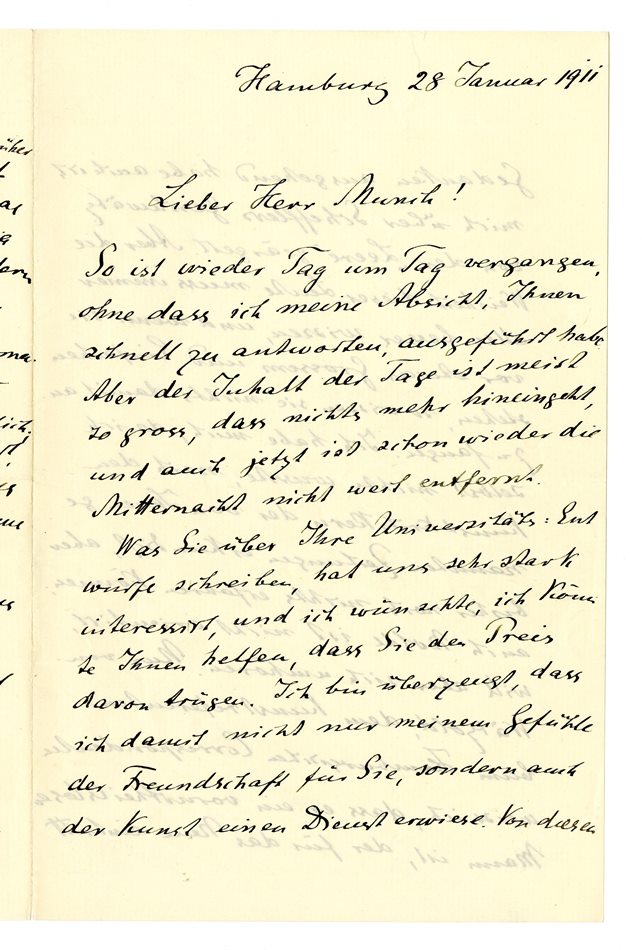 Hamburg 28 Januar 1911
Lieber Herr Munch!
So ist wieder Tag um Tag vergangen,
ohne dass ich meine Absicht, Ihnen
schnell zu antworten, ausgeführt habe.
Aber der Inhalt der Tage ist meist
so gross, dass nichts mehr hineingeht,
und auch jetzt ist schon wieder die
Mitternacht nicht weit entfernt.
Was Sie über Ihre Universitäts: Ent
würfe schreiben, hat uns sehr stark
interessirt, und ich wünschte, ich könn
te Ihnen helfen, dass Sie den Preis
davon trügen. Ich bin überzeugt, dass
ich damit nicht nur meinem Gefühle
der Freundschaft für Sie, sondern auch
der Kunst einen Dienst erwiese. Von diesen